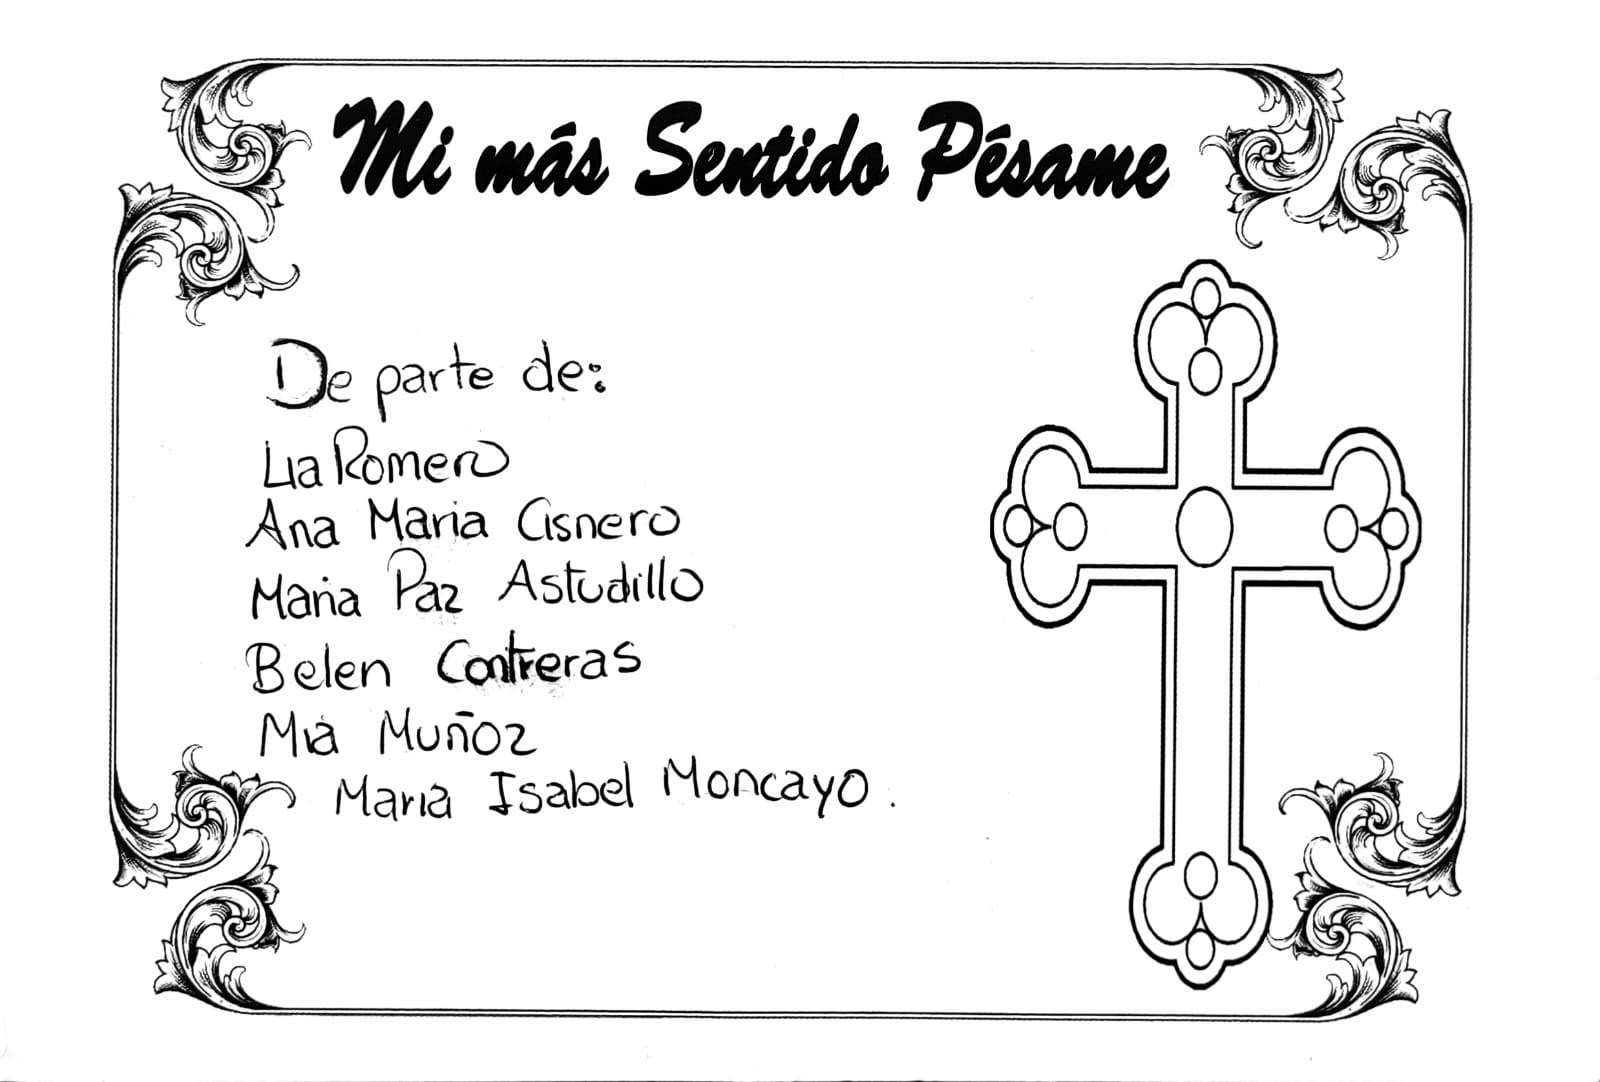 Mi más Sentido Pésame
De parte de:
Lia Romero
Ana Maria Cisnero
Maria Paz Astudillo
Belen Contreras
Mia Muñoz
Maria Isabel Moncayo.